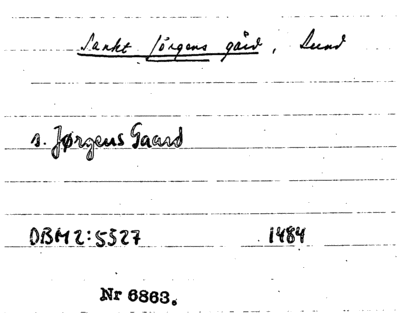 Sankt Jörgens gård, Lund
s. Jørgens Gaard
DBM2:5327 1484
Nr 6863.